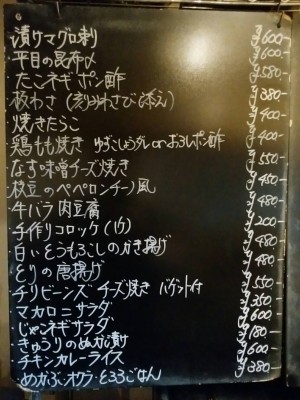 漬けマグロ刺 ¥600-
平目の昆布〆 ¥600-
たこネギポン酢 ¥580-
板わさ (刻みわさび添え) ¥380-
焼きたらこ ¥400-
鶏もも焼き ゆずこしょうダレ or おろしポン酢 ¥400-
なす味噌チーズ焼き ¥550-
枝豆のペペロンチーノ風 ¥450-
牛バラ肉豆腐 ¥480-
手作りコロッケ (1ケ) ¥200-
白いとうもろこしのかき揚げ ¥480-
とりの唐揚げ ¥480-
チリビーンズ チーズ焼き バゲット付 ¥550-
マカロニサラダ ¥350-
じゃこネギサラダ ¥600-
きゅうりのぬか漬 ¥180-
チキンカレーライス ¥600-
めかぶ・オクラ・とろろごはん ¥380-